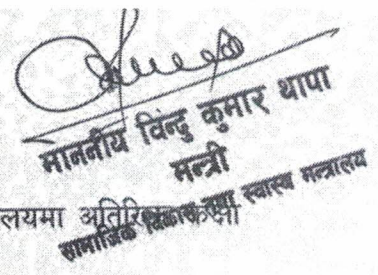 माननीय विन्दु कुमार थापा
मन्त्री
सामाजिक विकास तथा स्वास्थ मन्त्रालय
लयमा अतिरिक्त कक्षा